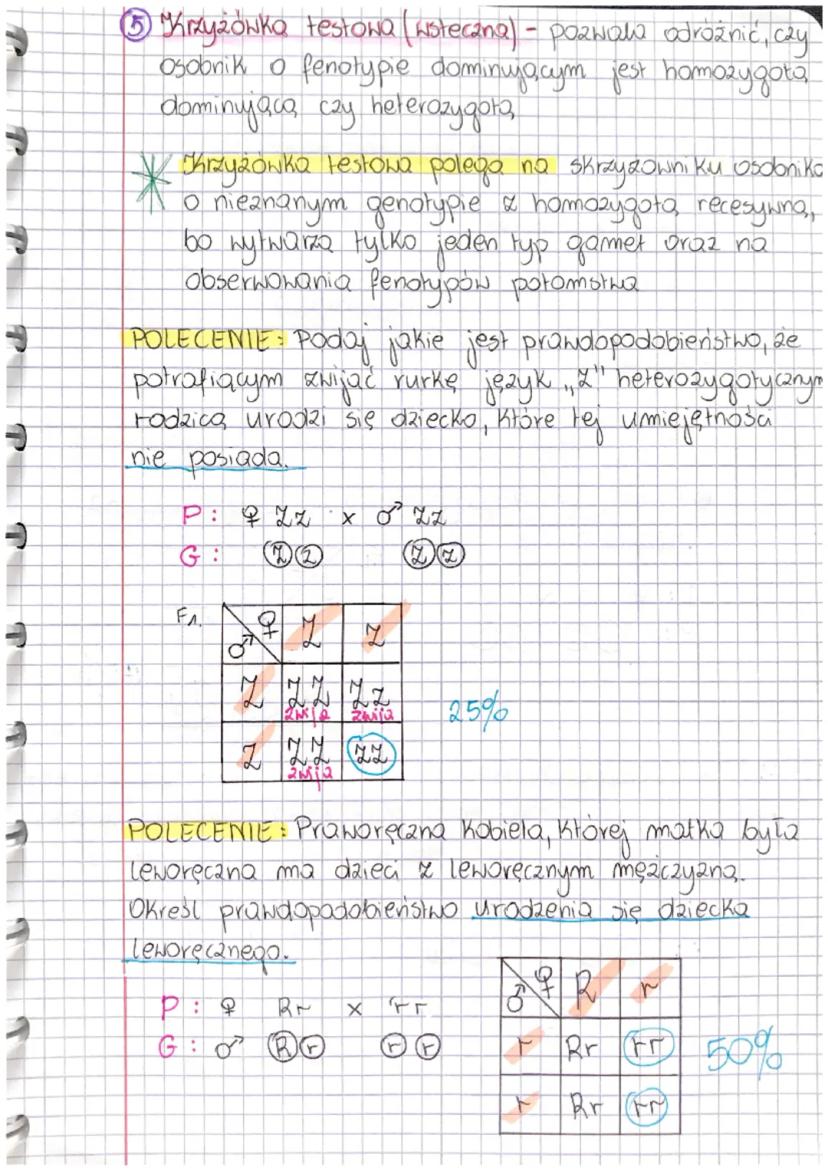 ⑤ Krzyżówka testowa (wsteczna) - pozwala odróżnić, czy
osobnik o fenotypie dominującym jest homozygotą
dominującą czy heterozygotą
Krzyżówka testowa polega na skrzyżowniku osobnika
o nieznanym genotypie z homozygotą recesywną,
bo wytwarza tylko jeden typ gamet oraz na
obserwowania fenotypów potomstwa
POLECENIE: Podaj jakie jest prawdopodobieństwo, że
potrafiącym zwijać rurkę język "Z" heterozygotycznym
rodzicą urodzi się dziecko, które tej umiejętności
nie posiada.
P: ♀ Zz x ♂ Zz
G: Z z Z z
F1. ♂ ♀ Z z
Z ZZ Zz
zwija zwija
25%
z Zz zz
zwija
POLECENIE: Praworęczna kobieta, której matka była
leworęczna ma dzieci z leworęcznym mężczyzną.
Określ prawdopodobieństwo urodzenia się dziecka
leworęcznego.
P: ♀ Rr x rr
G: ♂ R r r r
♂ ♀ R r
r Rr rr
r Rr rr
50%